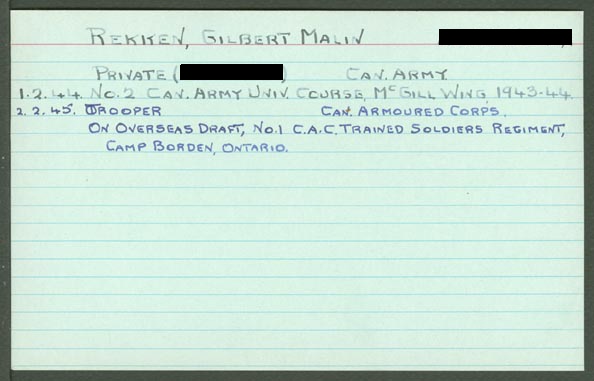 REKKEN, GILBERT MALIN
PRIVATE ( ) CAN. ARMY
1.2.44. NO. 2 CAN. ARMY UNIV. COURSE, MCGILL WING, 1943-44.
2.2.45. TROOPER CAN. ARMOURED CORPS.
ON OVERSEAS DRAFT, NO. 1 C.A.C. TRAINED SOLDIERS REGIMENT,
CAMP BORDEN, ONTARIO.